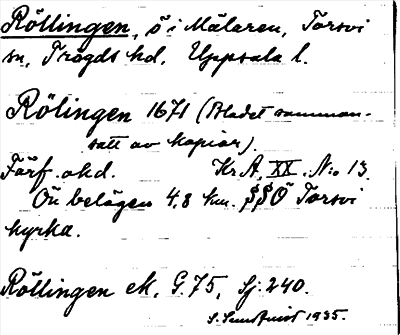 Röllingen, ö i Mälaren, Torsvi
sn, Trögds hd, Uppsala l.
Rölingen 1671 (Bladet samman-
satt av kopior).
Förf. okd. Kr A, XX. N:o 13.
Ön belägen 4,8 km. SSÖ Torsvi
kyrka.
Röllingen ek. G. 75, Sj. 240.
S. Sundqvist 1935.